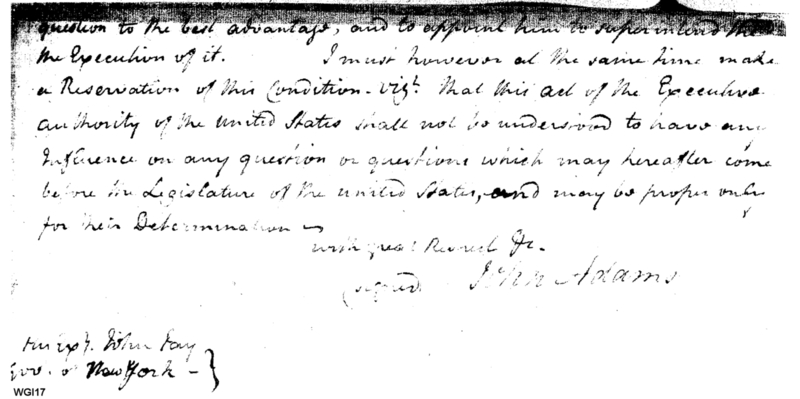 question to the best advantage, and to appoint him to superintend the
the Execution of it. I must however at the same time make
a Reservation of this Condition - vizt. that this act of the Executive
authority of the United States shall not be understood to have any
Influence on any question or questions which may hereafter come
before the Legislature of the united States, and may be proper only
for their Determination -
with great Respect &c.
(signed John Adams
John Jay
Gov. of New York - }
WGI17